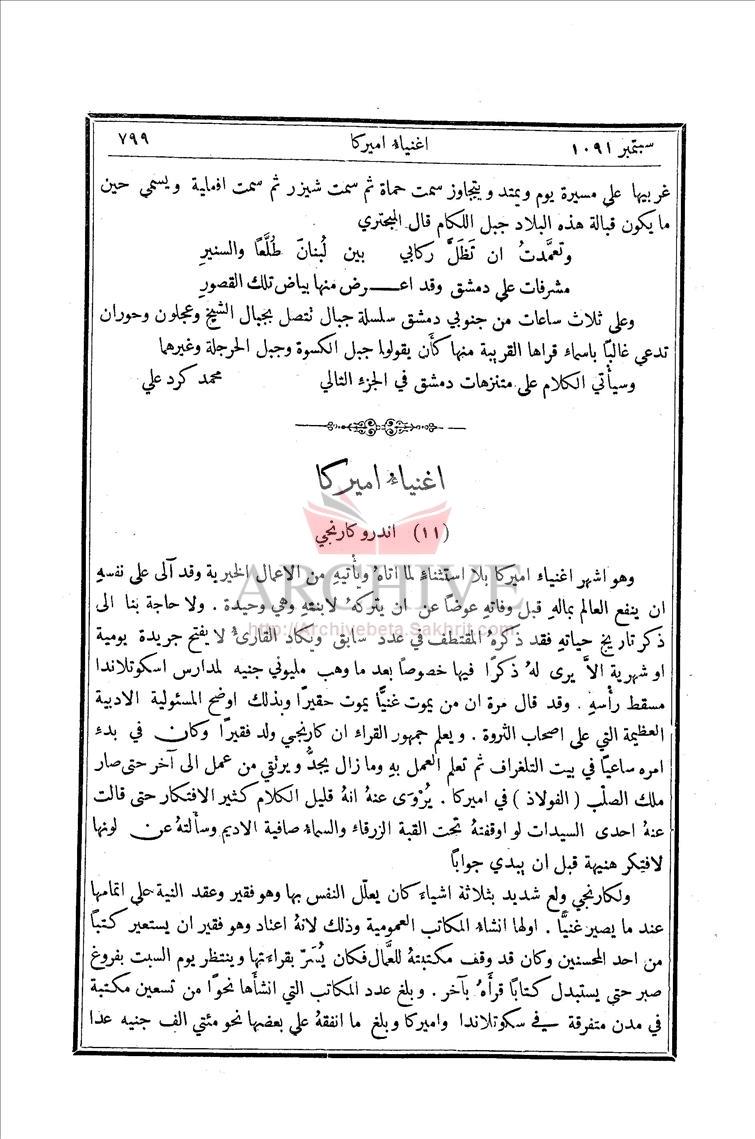 سبتمبر ١٠٩١ اغنياء اميركا ٧٩٩
غربيها على مسيرة يوم ويمتد ويتجاوز سمت حماة ثم سمت شيزر ثم سمت افمامية ويسمى حين
ما يكون قبالة هذه البلاد جبل اللكام قال البحتري
وتعمَّدتُ ان تَظَلَّ ركابي بين لُبنانَ طُلَّعًا والسنيرِ
مشرفات على دمشق وقد اعـــرض منها بياض تلك القصورِ
وعلى ثلاث ساعات من جنوبي دمشق سلسلة جبال تتصل بجبال الشيخ وعجلون وحوران
تدعى غالبًا باسماء قراها القريبة منها كأن يقولوا جبل الكسوة وجبل الحرجلة وغيرهما
وسيأتي الكلام على متنزهات دمشق في الجزء التالي محمد كرد علي
اغنياء اميركا
(١١) اندرو كارنجي
ARCHIVE
http://Archivebeta.Sakhrit.com
وهو اشهر اغنياء اميركا بلا استثناء لما اتاهُ ويأتيهِ من الاعمال الخيرية وقد آلى على نفسهِ
ان ينفع العالم بمالهِ قبل وفاتهِ عوضًا عن ان يتركهُ لابنتهِ وهي وحيدة . ولا حاجة بنا الى
ذكر تاريخ حياتهِ فقد ذكرهُ المقتطف في عدد سابق ونكاد القارئ لا يفتح جريدة يومية
او شهرية الاَّ يرى لهُ ذكرًا فيها خصوصًا بعد ما وهب مليوني جنيه لمدارس اسكوتلاندا
مسقط رأسهِ . وقد قال مرة ان من يموت غنيًّا يموت حقيرًا وبذلك اوضح المسئولية الادبية
العظيمة التي على اصحاب الثروة . ويعلم جمهور القراء ان كارنجي ولد فقيرًا وكان في بدء
امره ساعيًا في بيت التلغراف ثم تعلم العمل بهِ وما زال يجدُّ ويرتقي من عمل الى آخر حتى صار
ملك الصلب ( الفولاذ ) في اميركا . يُرْوَى عنهُ انهُ قليل الكلام كثير الافتكار حتى قالت
عنهُ احدى السيدات لو اوقفتهُ تحت القبة الزرقاء والسماء صافية الاديم وسألتهُ عن لونها
لافتكر هنيهة قبل ان يبدي جوابًا
ولكارنجي ولع شديد بثلاثة اشياء كان يعلّل النفس بها وهو فقير وعقد النية على اتمامها
عند ما يصير غنيًّا . اولها انشاء المكاتب العمومية وذلك لانهُ اعتاد وهو فقير ان يستعير كتبًا
من احد المحسنين وكان قد وقف مكتبتهُ للعمال فكان يُسَرّ بقراءتها وينتظر يوم السبت بفروغ
صبر حتى يستبدل كتابًا قرأهُ بآخر . وبلغ عدد المكاتب التي انشأها نحوًا من تسعين مكتبة
في مدن متفرقة في سكوتلاندا واميركا وبلغ ما انفقهُ على بعضها نحو مئتي الف جنيه عدا